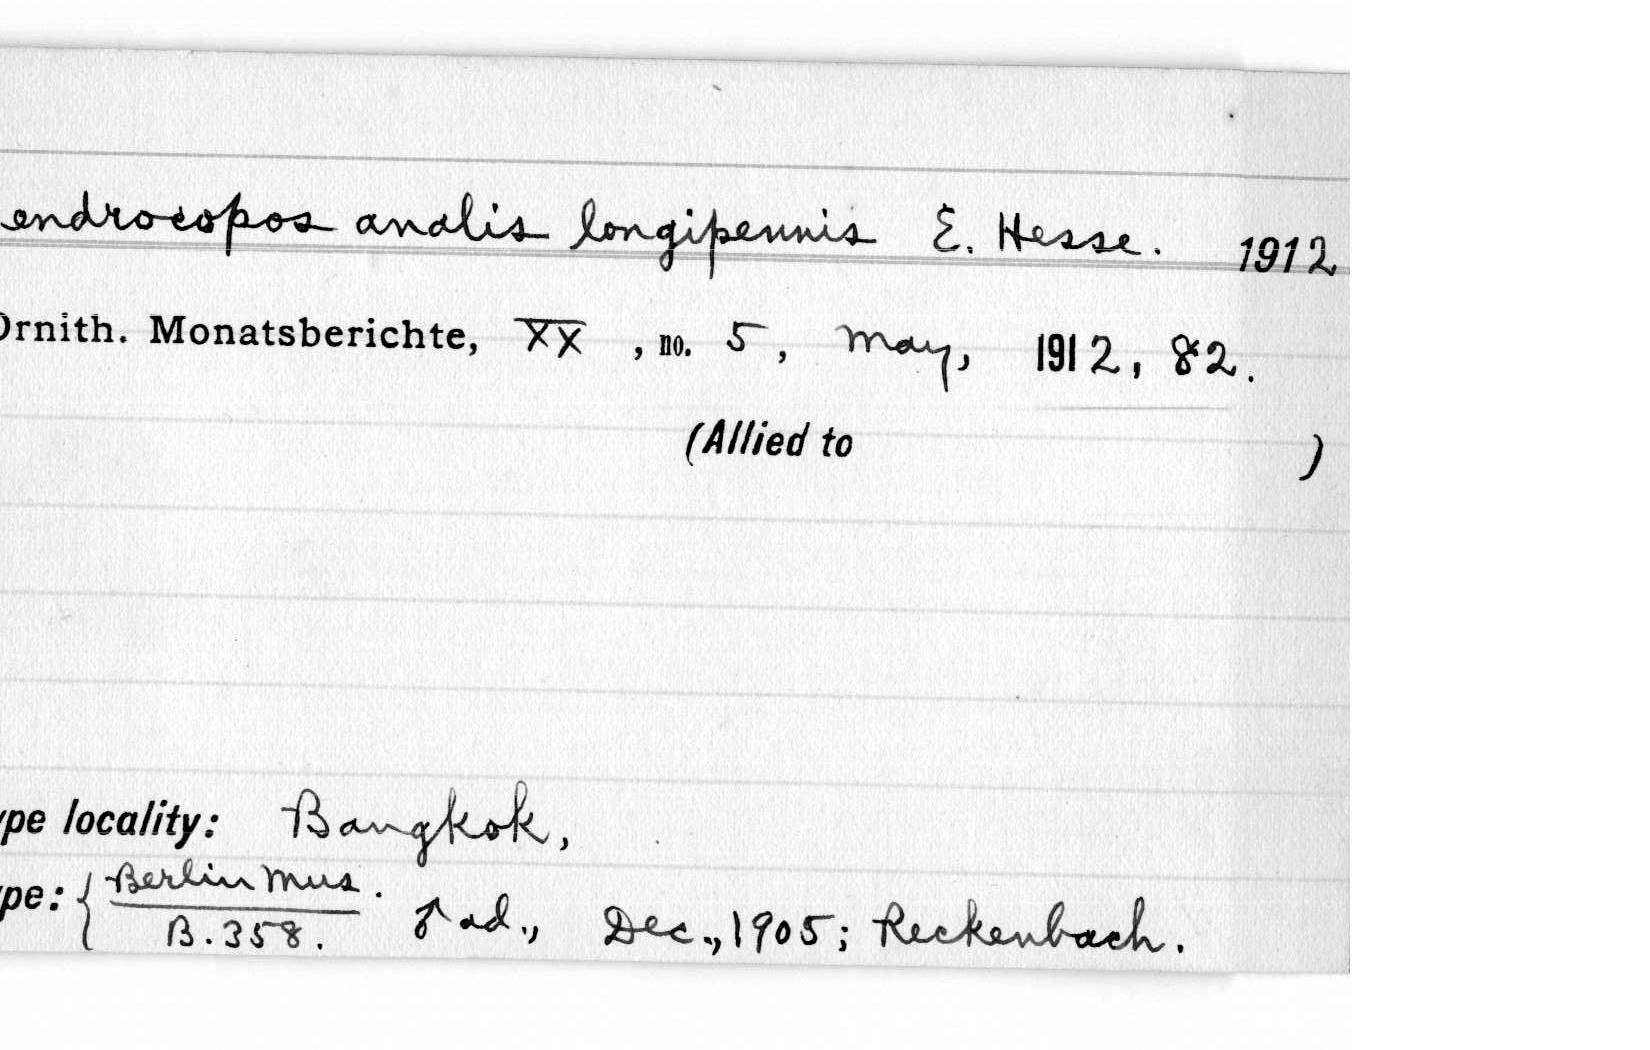 endrocopos analis longipennis E. Hesse. 1912
Ornith. Monatsberichte, XX, no. 5, May, 1912, 82.
(Allied to )
ype locality: Bangkok,
ype: { Berlin Mus.
B.358. ♂ ad., Dec., 1905; Reckenbach.